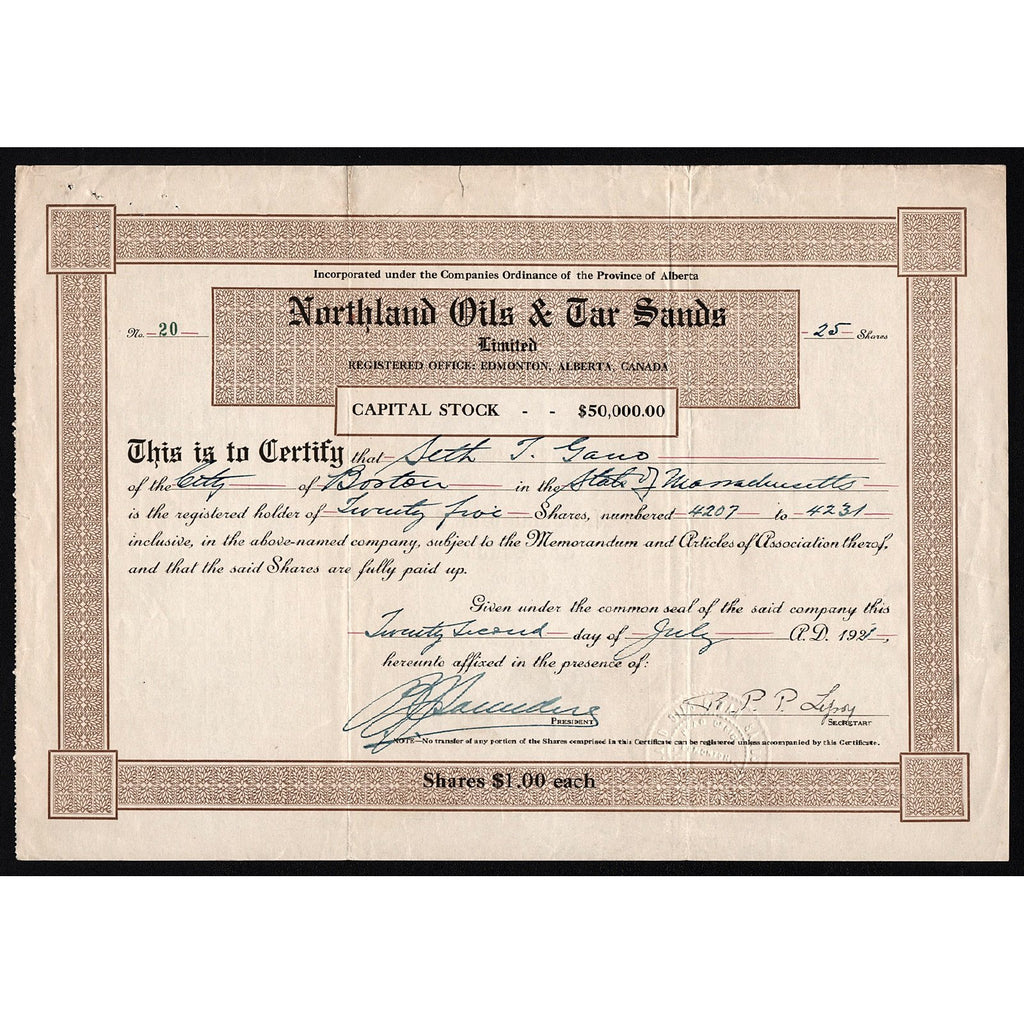 Incorporated under the Companies Ordinance of the Province of Alberta
Northland Oils & Tar Sands
Limited
REGISTERED OFFICE: EDMONTON, ALBERTA, CANADA
No. 20
25 Shares
CAPITAL STOCK - - $50,000.00
This is to Certify that Seth T. Gano
of the City of Boston in the State of Massachusetts
is the registered holder of Twenty five Shares, numbered 4207 to 4231
inclusive, in the above-named company, subject to the Memorandum and Articles of Association therof,
and that the said Shares are fully paid up.
Given under the common seal of the said company this
Twenty Second day of July A.D. 1921,
hereunto affixed in the presence of:
Saunders
PRESIDENT
R. P. P.
SECRETARY
NOTE—No transfer of any portion of the Shares comprised in this Certificate can be registered unless accompanied by this Certificate.
Shares $1.00 each